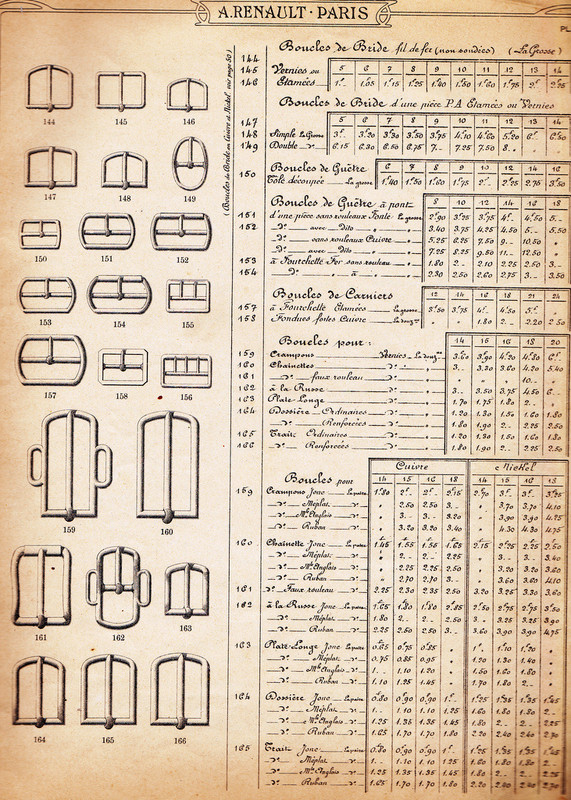 A. RENAULT · PARIS
PL
Boucles de Bride fil de fer (non soudées) (La Grosse)
144
145 Vernies ou
146 Étamées
5 6 7 8 9 10 11 12 13 14
Boucles de Bride d'une pièce P.A Étamées ou Vernies
5 6 7 8 9 10 11 12 13 14
147
148 Simple La Grosse 3".. 3.20 3.30 3.50 3.75 4.10 4.60 5.20 6." 6.50
149 Double _ d° _ 6.15 6.30 6.50 6.75 7.- 7.25 7.50 8.-
(Boucles de Bride en Cuivre et Nickel voir page 50)
Boucles de Guêtre
6 7 8 9 10 12 14 16
150 Tôle découpée _ La grosse 1.40 1.50 1.60 1.75 2.- 2.25 2.75 3.50
Boucles de Guêtre à pont
8 10 12 14 16 18
151 d'une pièce sans rouleaux Fonte La grosse 2.90 3.25 3.75 4.- 4.50 5.-
152 _ d° _ avec _ dito _ 3.40 3.75 4.25 4.50 5.- 5.50
_ d° _ sans rouleaux Cuivre _ d° _ 5.25 6.25 7.50 9.- 10.50
_ d° _ avec _ dito _ 7.25 8.25 9.50 11.- 12.50
153 à Fourchette Fer sans rouleau _ d° _ 1.80 2.- 2.10 2.25 2.50 3.-
154 _ d° _ à _ d° _ 2.30 2.50 2.60 2.75 3.- 3.50
Boucles de Carniers
12 14 16 18 21 24
157 à Fourchette Étamées _ La grosse 3.50 3.75 4.- 4.50 5.-
158 Fondues fortes Cuivre _ La douz^ne 1.80 2.- 2.20 2.50
Boucles pour :
14 15 16 18 20
159 Crampons _ Vernies _ La douz^ne
160 Chainettes _ d° _ 3.- 3.20 3.60 4.20 5.40
161 _ d° _ faux rouleau _ d° _ 10.-
162 à la Russe _ d° _ 3.- 3.50 3.75 4.50 6.-
163 Plate Longe _ d° _ 1.70 1.75 1.80 2.-
164 Dossière _ Ordinaires _ d° _ 1.20 1.30 1.50 1.60 1.80
_ d° _ Renforcées _ d° _ 1.80 1.90 2.- 2.25 2.50
165 Trait _ Ordinaires _ d° _ 1.20 1.30 1.50 1.60 1.80
166 _ d° _ Renforcées _ d° _ 1.80 1.90 2.- 2.25 2.50
Boucles pour
Cuivre Nickel
14 15 16 18 14 15 16 18
159 Crampons Jonc _ La paire
_ d° _ Méplat _ d° _ 2.50 2.50 3.-
_ d° _ M^t Anglais _ d° _ 3.- 3.- 3.20
_ d° _ Ruban _ d° _ 3.20 3.20 3.40
160 Chainette Jonc _ La paire 1.45 1.55 1.55 1.65 2.15 2.25 2.25 2.50
_ d° _ Méplat _ d° _ 2.- 2.- 2.25
_ d° _ M^t Anglais _ d° _ 2.25 2.25 2.50
_ d° _ Ruban _ d° _ 2.70 2.70 3.-
161 _ d° _ Faux rouleau _ d° _ 2.25 2.30 2.35 2.50 3.20 3.25 3.30 3.60
162 à la Russe Jonc _ La paire 1.65 1.80 1.80 2.25 2.50 2.75 2.75 3.50
_ d° _ Méplat _ d° _ 1.80 2.- 2.- 2.50
_ d° _ Ruban _ d° _ 2.25 2.50 2.50 3.-
163 Plate-Longe Jonc La paire 0.65 0.75 0.85 1.- 1.10 1.20
_ d° _ Méplat _ d° _ 0.75 0.85 0.95 1.20 1.30 1.40
_ d° _ M^t Anglais _ d° _ 1.- 1.10 1.20 1.50 1.60 1.80
_ d° _ Ruban _ d° _ 1.10 1.25 1.45 1.70 1.80 2.-
164 Dossière Jonc _ La paire 0.80 0.90 0.90 1.- 1.25 1.35 1.35 1.45
_ d° _ Méplat _ d° _ 1.- 1.10 1.10 1.25 1.60 1.80 1.80 2.-
_ d° _ M^t Anglais _ d° _ 1.25 1.35 1.35 1.45 1.80 2.- 2.- 2.25
_ d° _ Ruban _ d° _ 1.65 1.70 1.70 1.80 2.20 2.40 2.40 2.70
165 Trait Jonc _ La paire 0.80 0.90 0.90 1.- 1.25 1.35 1.35 1.45
_ d° _ Méplat _ d° _ 1.- 1.10 1.10 1.25 1.60 1.80 1.80 2.-
_ d° _ M^t Anglais _ d° _ 1.25 1.35 1.35 1.45 1.80 2.- 2.- 2.25
_ d° _ Ruban _ d° _ 1.65 1.70 1.70 1.80 2.20 2.40 2.40 2.70
144 145 146
147 148 149
150 151 152
153 154 155
157 158 156
159 160
161 162 163
164 165 166